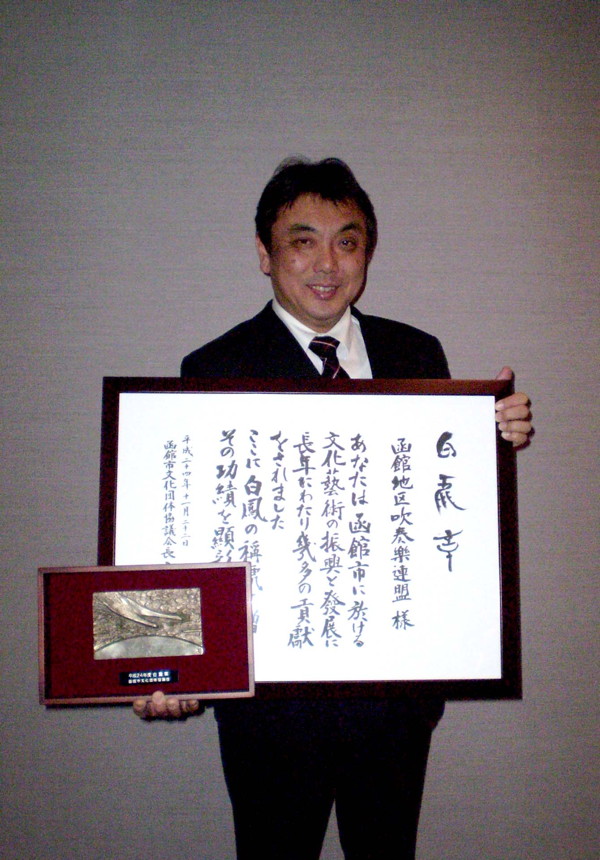 白鳳章
函館地区吹奏樂連盟 様
あなたは 函館市に於ける
文化藝術の振興と發展に
長年にわたり幾多の貢獻
をされました
ここに白鳳の称
その功績を顕
平成二十四年十一月二十三日
函館市文化団体協議会長
平成24年度白鳳章
函館市文化団体協議会